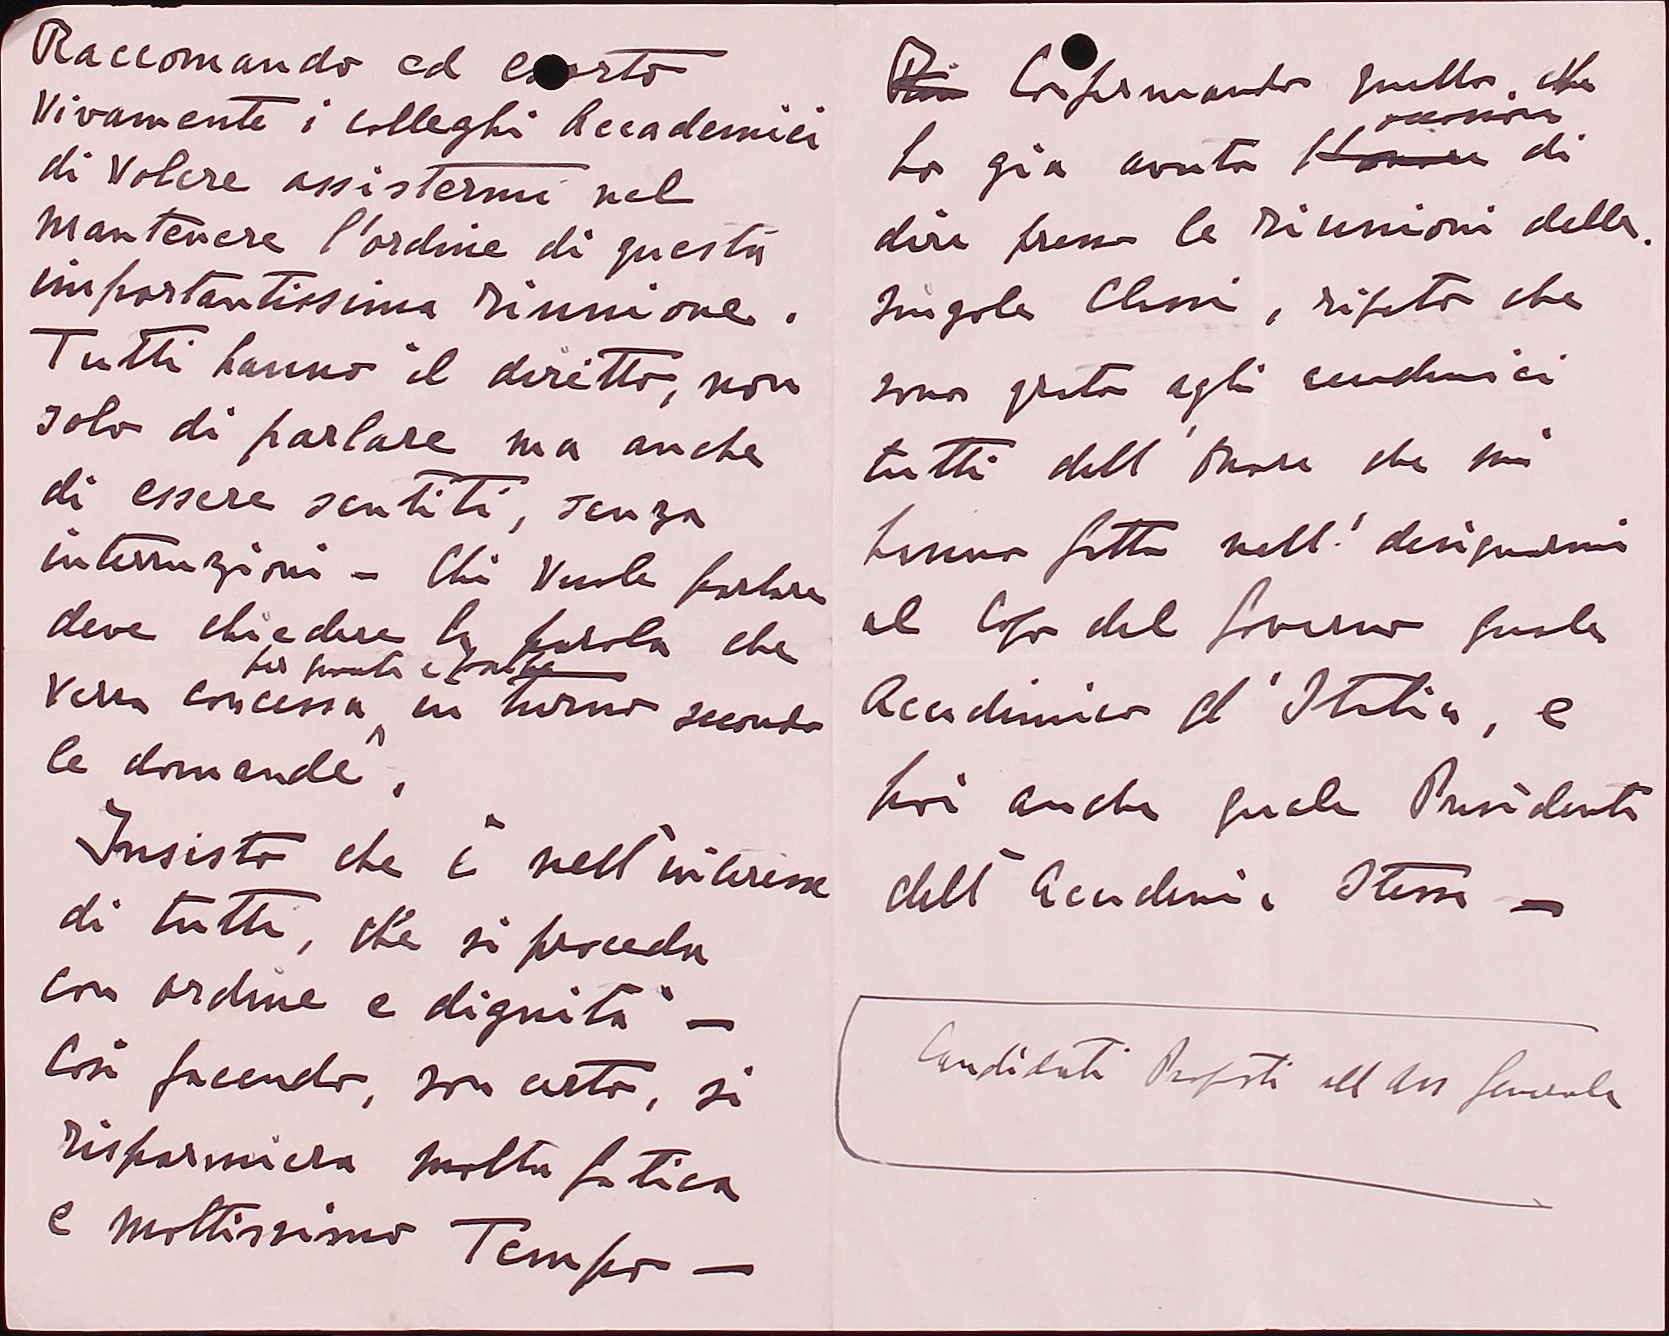 Raccomando ed esorto
vivamente i colleghi Accademici
di volere assistermi nel
mantenere l'ordine di questa
importantissima riunione.
Tutti hanno il diritto, non
solo di parlare ma anche
di essere sentiti, senza
interruzioni – Chi vuole parlare
deve chiedere la parola che
verra concessa in turno secondo
le domande.
Insisto che è nell'interesse
di tutti, che si proceda
con ordine e dignità –
Così facendo, son certo, si
risparmiera molta fatica
e moltissimo Tempo –
Confermando quello che
occasione
ho gia avuto l'onore di
dire presso le riunioni delle
singole Classi, ripeto che
sono grato agli accademici
tutti dell'onore che mi
hanno fatto nell' designarmi
al Capo del Governo quale
Accademico d'Italia, e
poi anche quale Presidente
dell'Accademia Stessa –
Candidati Proposti all Ass Generale